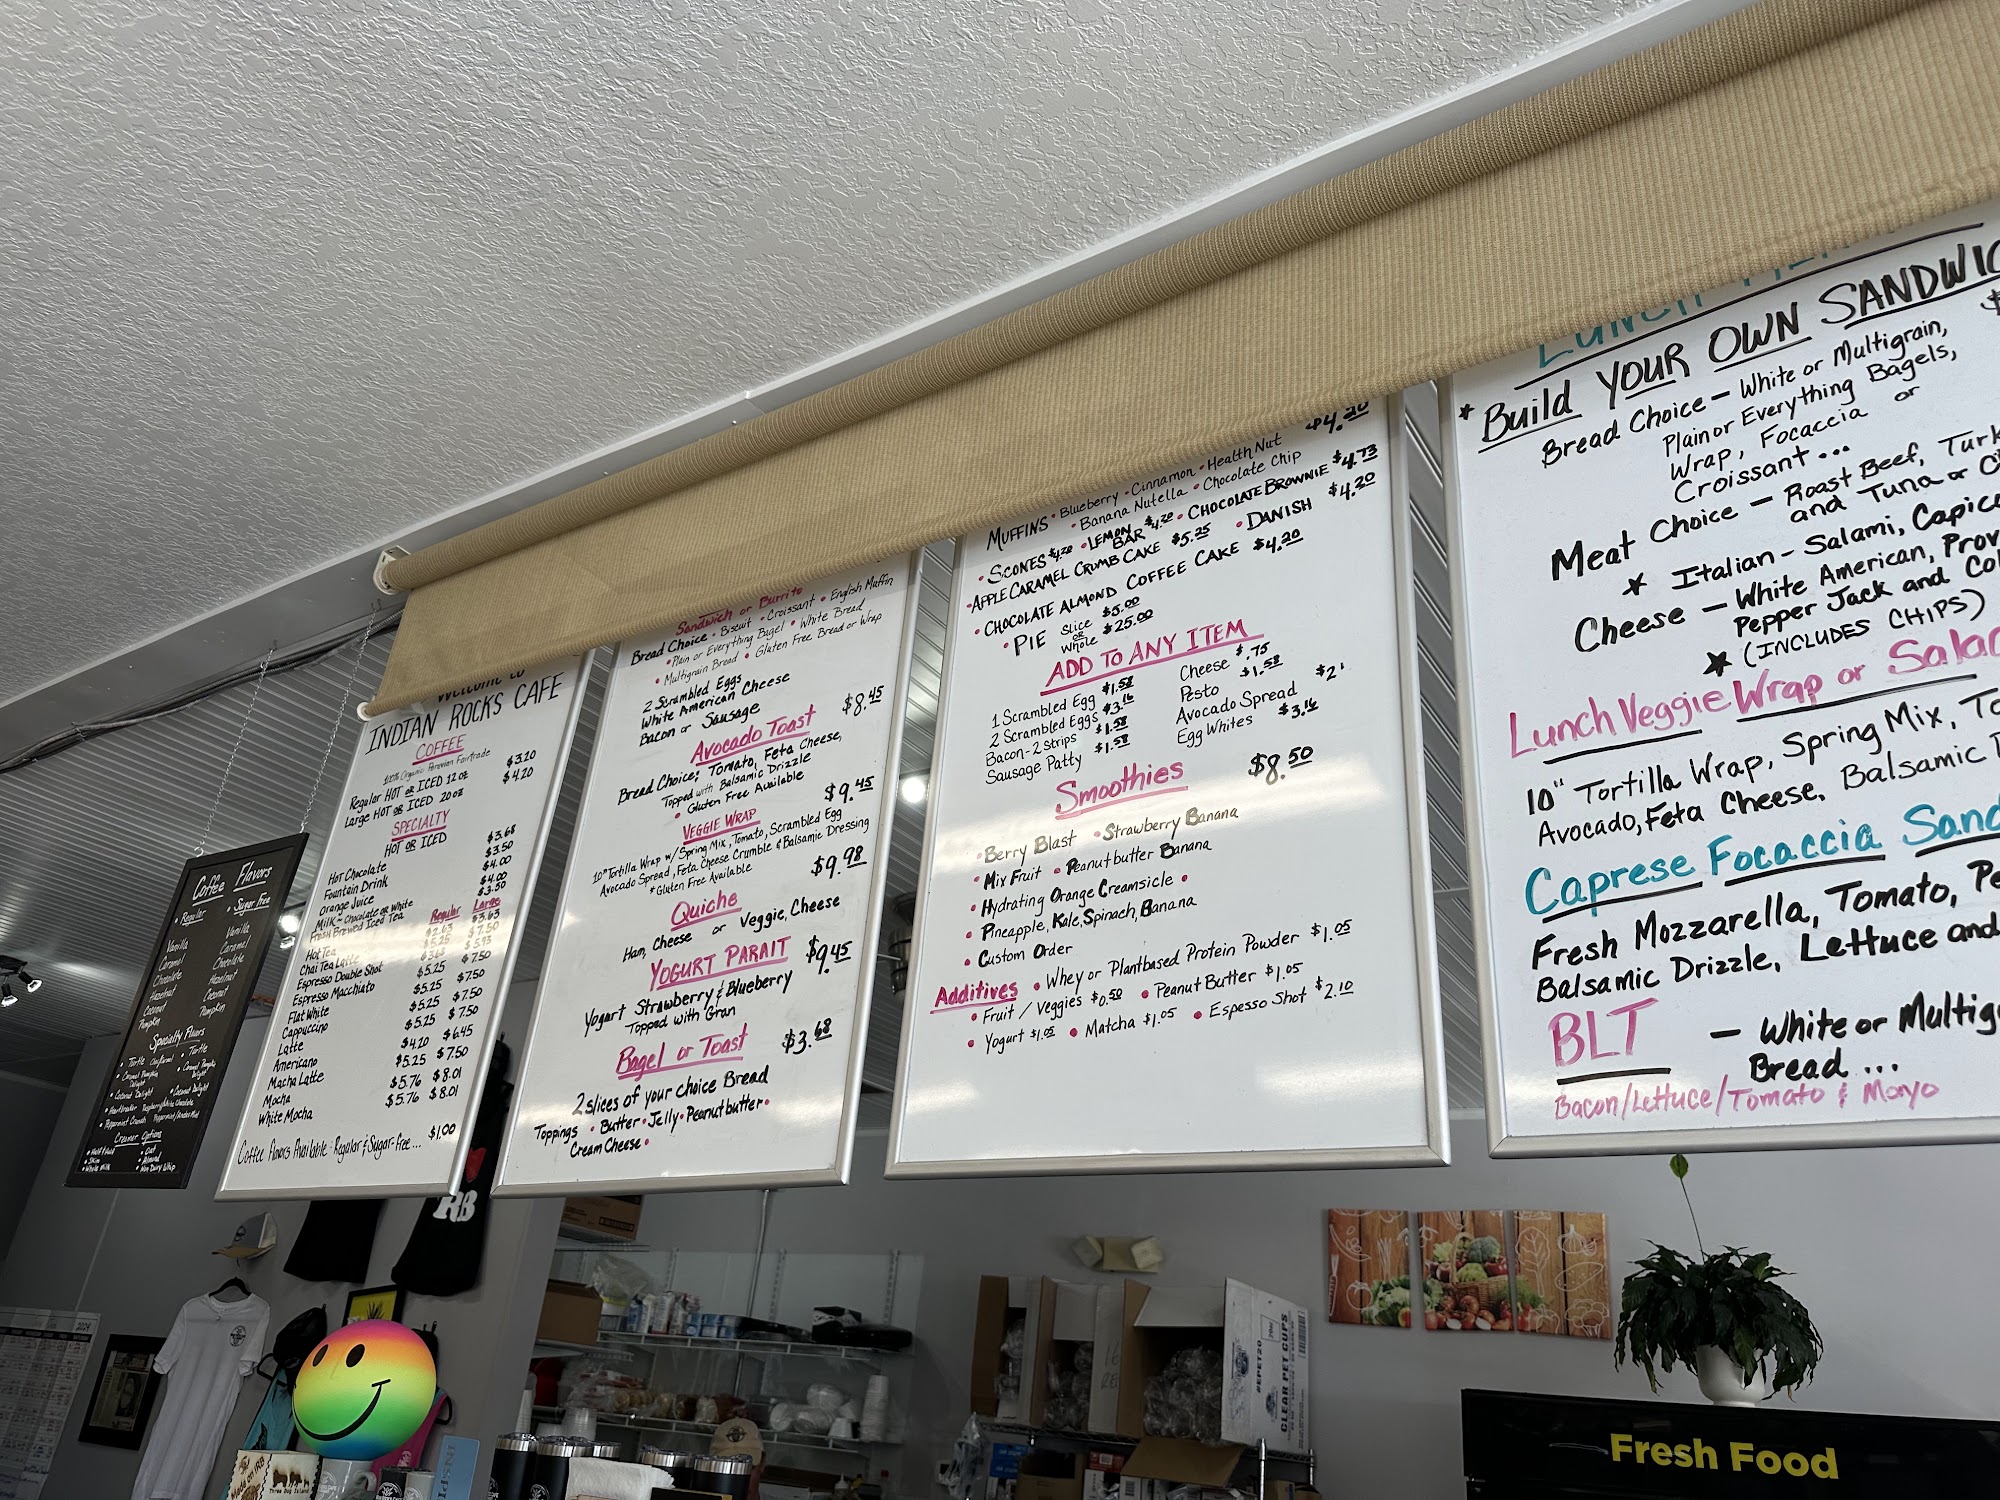 Coffee Flavors
• Regular • Sugar Free
Vanilla Vanilla
Caramel Caramel
Chocolate Chocolate
Hazelnut Hazelnut
Coconut Coconut
Pumpkin Pumpkin
Specialty Flavors
Creamer Options
• Half & Half • Oat
• Skim • Almond
• Whole Milk • Non Dairy Whip
Welcome to
INDIAN ROCKS CAFE
COFFEE
100% Organic Peruvian Fairtrade
Regular HOT or ICED 12 oz $3.20
Large HOT or ICED 20 oz $4.20
SPECIALTY
HOT or ICED
Hot Chocolate $3.68
Fountain Drink $3.50
Orange Juice $4.00
Milk - Chocolate or White $4.00
Fresh Brewed Iced Tea $3.50
Regular Large
Hot Tea $2.63 $3.63
Chai Tea Latte $5.25 $7.50
Espresso Double Shot $3.65 $5.93
Espresso Macchiato $5.25 $7.50
Flat White $5.25 $7.50
Cappuccino $5.25 $7.50
Latte $5.25 $7.50
Americano $4.20 $6.45
Macha Latte $5.25 $7.50
Mocha $5.76 $8.01
White Mocha $5.76 $8.01
Coffee Flavors Available: Regular & Sugar-Free... $1.00
Sandwich or Burrito
Bread Choice • Biscuit • Croissant • English Muffin
• Plain or Everything Bagel • White Bread
• Multigrain Bread • Gluten Free Bread or Wrap
2 Scrambled Eggs
White American Cheese
Bacon or Sausage
Avocado Toast $8.45
Bread Choice; Tomato, Feta Cheese,
Topped with Balsamic Drizzle
• Gluten Free Available
VEGGIE WRAP $9.45
10" Tortilla Wrap w/ Spring Mix, Tomato, Scrambled Egg
Avocado Spread, Feta Cheese Crumble & Balsamic Dressing
* Gluten Free Available
Quiche $9.98
Ham, Cheese or Veggie, Cheese
YOGURT PARAIT $9.45
Yogurt Strawberry & Blueberry
Topped with Gran
Bagel or Toast $3.68
2 slices of your choice Bread
Toppings • Butter • Jelly • Peanutbutter •
Cream Cheese •
$4.20
MUFFINS • Blueberry • Cinnamon • Health Nut
• Banana Nutella • Chocolate Chip
• SCONES $4.20 • LEMON BAR $4.20 • CHOCOLATE BROWNIE $4.73
• APPLE CARAMEL CRUMB CAKE $5.25 • DANISH $4.20
• CHOCOLATE ALMOND COFFEE CAKE $4.20
• PIE Slice $5.00
or
Whole $25.00
ADD TO ANY ITEM
1 Scrambled Egg $1.58 Cheese $.75
2 Scrambled Eggs $3.16 Pesto $1.58
Bacon-2 Strips $1.58 Avocado Spread $2
Sausage Patty $1.58 Egg Whites $3.16
Smoothies $8.50
• Berry Blast • Strawberry Banana
• Mix Fruit • Peanutbutter Banana
• Hydrating Orange Creamsicle •
• Pineapple, Kale, Spinach, Banana
• Custom Order
Additives • Whey or Plantbased Protein Powder $1.05
• Fruit / Veggies $0.50 • Peanut Butter $1.05
• Yogurt $1.05 • Matcha $1.05 • Espesso Shot $2.10
LUNCH
* Build YOUR OWN SANDWIC
Bread Choice - White or Multigrain,
Plain or Everything Bagels,
Wrap, Focaccia or
Croissant...
Meat Choice - Roast Beef, Turk
and Tuna or C
★ Italian - Salami, Capico
Cheese - White American, Prov
Pepper Jack and Col
★ (INCLUDES CHIPS)
Lunch Veggie Wrap or Salad
10" Tortilla Wrap, Spring Mix, To
Avocado, Feta Cheese, Balsamic
Caprese Focaccia Sand
Fresh Mozzarella, Tomato, Pe
Balsamic Drizzle, Lettuce and
BLT - White or Multig
Bread ...
Bacon/Lettuce/Tomato & Mayo
RB
#PET20
CLEAR PET CUPS
Fresh Food
Made on IRB
Three Dog Island